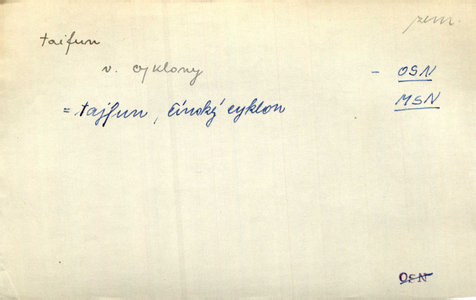 zem.
taifun
v. cyklony – OSN
= tajfun, čínský cyklon MSN
OSN